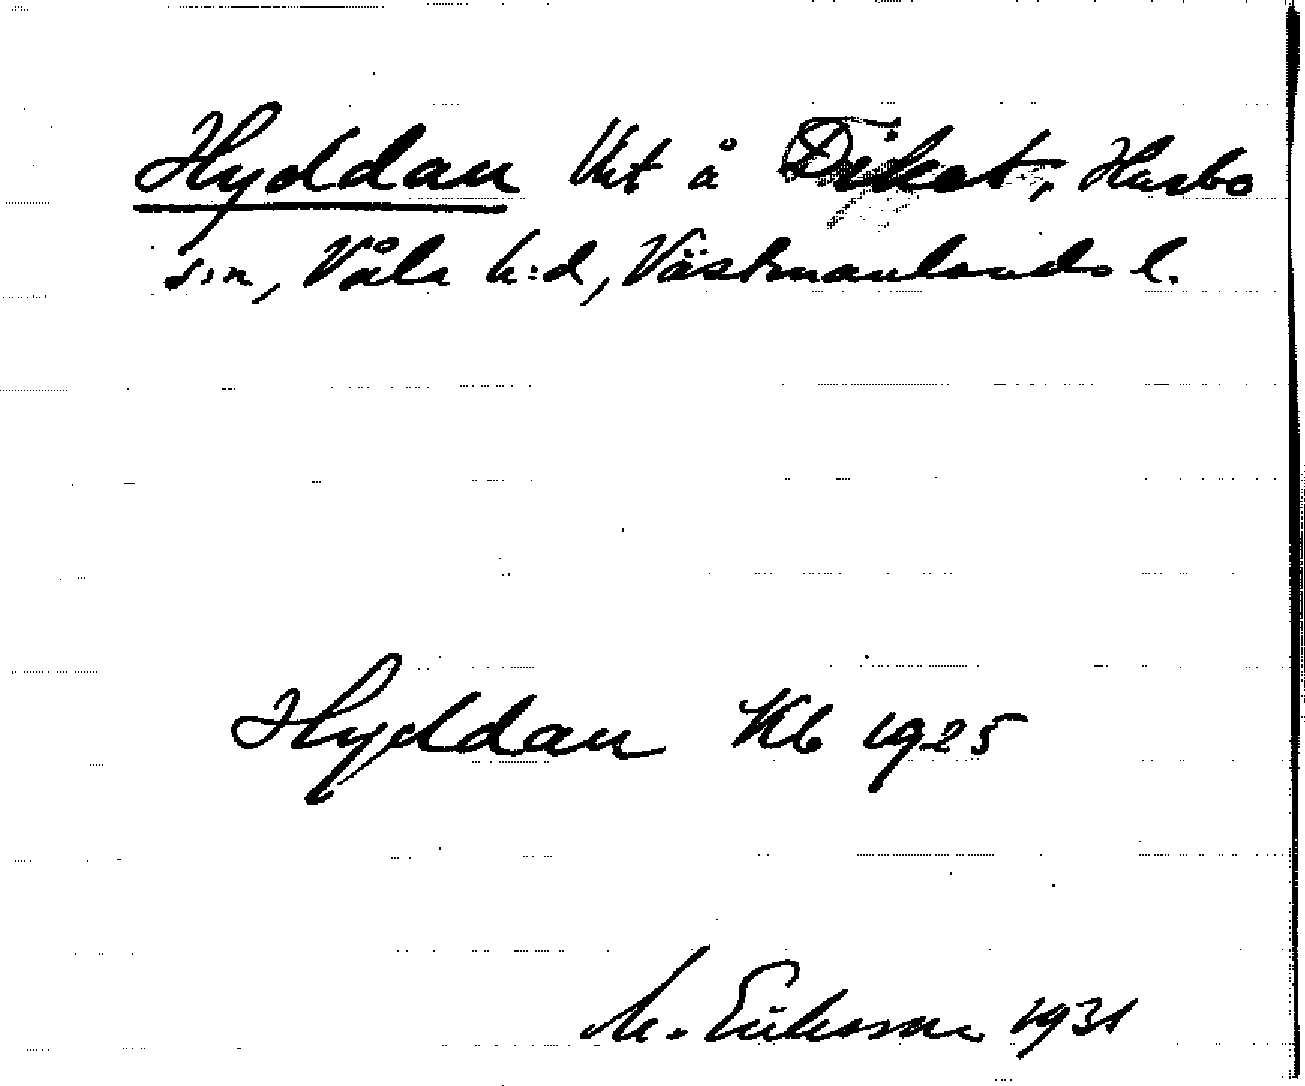 Hyddan Vret å Diket, Harbo
s:n, Våla h:d, Västmanlands l.
Hyddan Kb 1925
M. Eriksson 1931